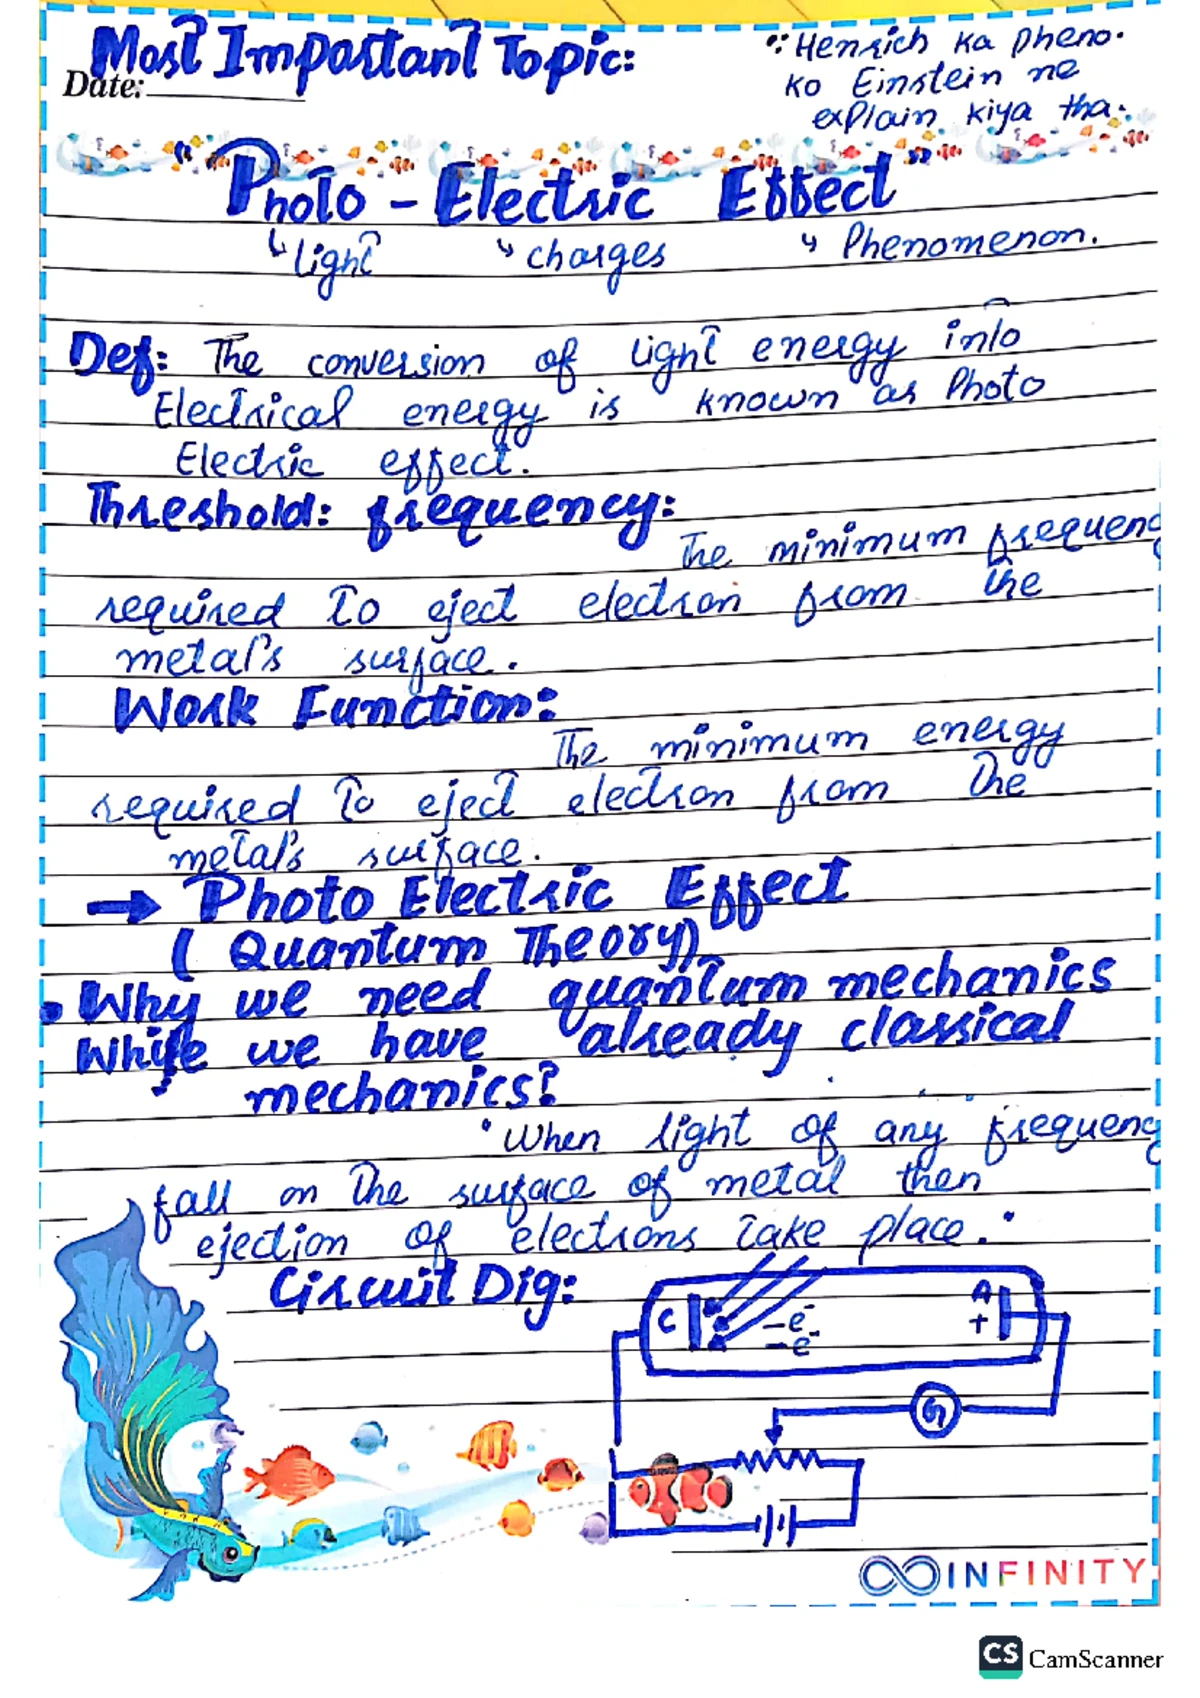 Most Important Topic:
Date:
∵ Henrich ka pheno.
ko Einstein ne
explain kiya tha.
"Photo - Electric Effect"
↳ light ↳ charges ↳ Phenomenon.
Def: The conversion of light energy into
Electrical energy is known as Photo
Electric effect.
Threshold: frequency:
The minimum frequenc
required to eject electron from the
metal's surface.
Work Function:
The minimum energy
required to eject electron from the
metal's surface.
→ Photo Electric Effect
( Quantum Theory)
• Why we need quantum mechanics
While we have already classical
mechanics?
• When light of any frequenc
fall on the surface of metal then
ejection of electrons take place.
Circuit Dig:
C
-e⁻
-e⁻
A
+
G
INFINITY
CS CamScanner